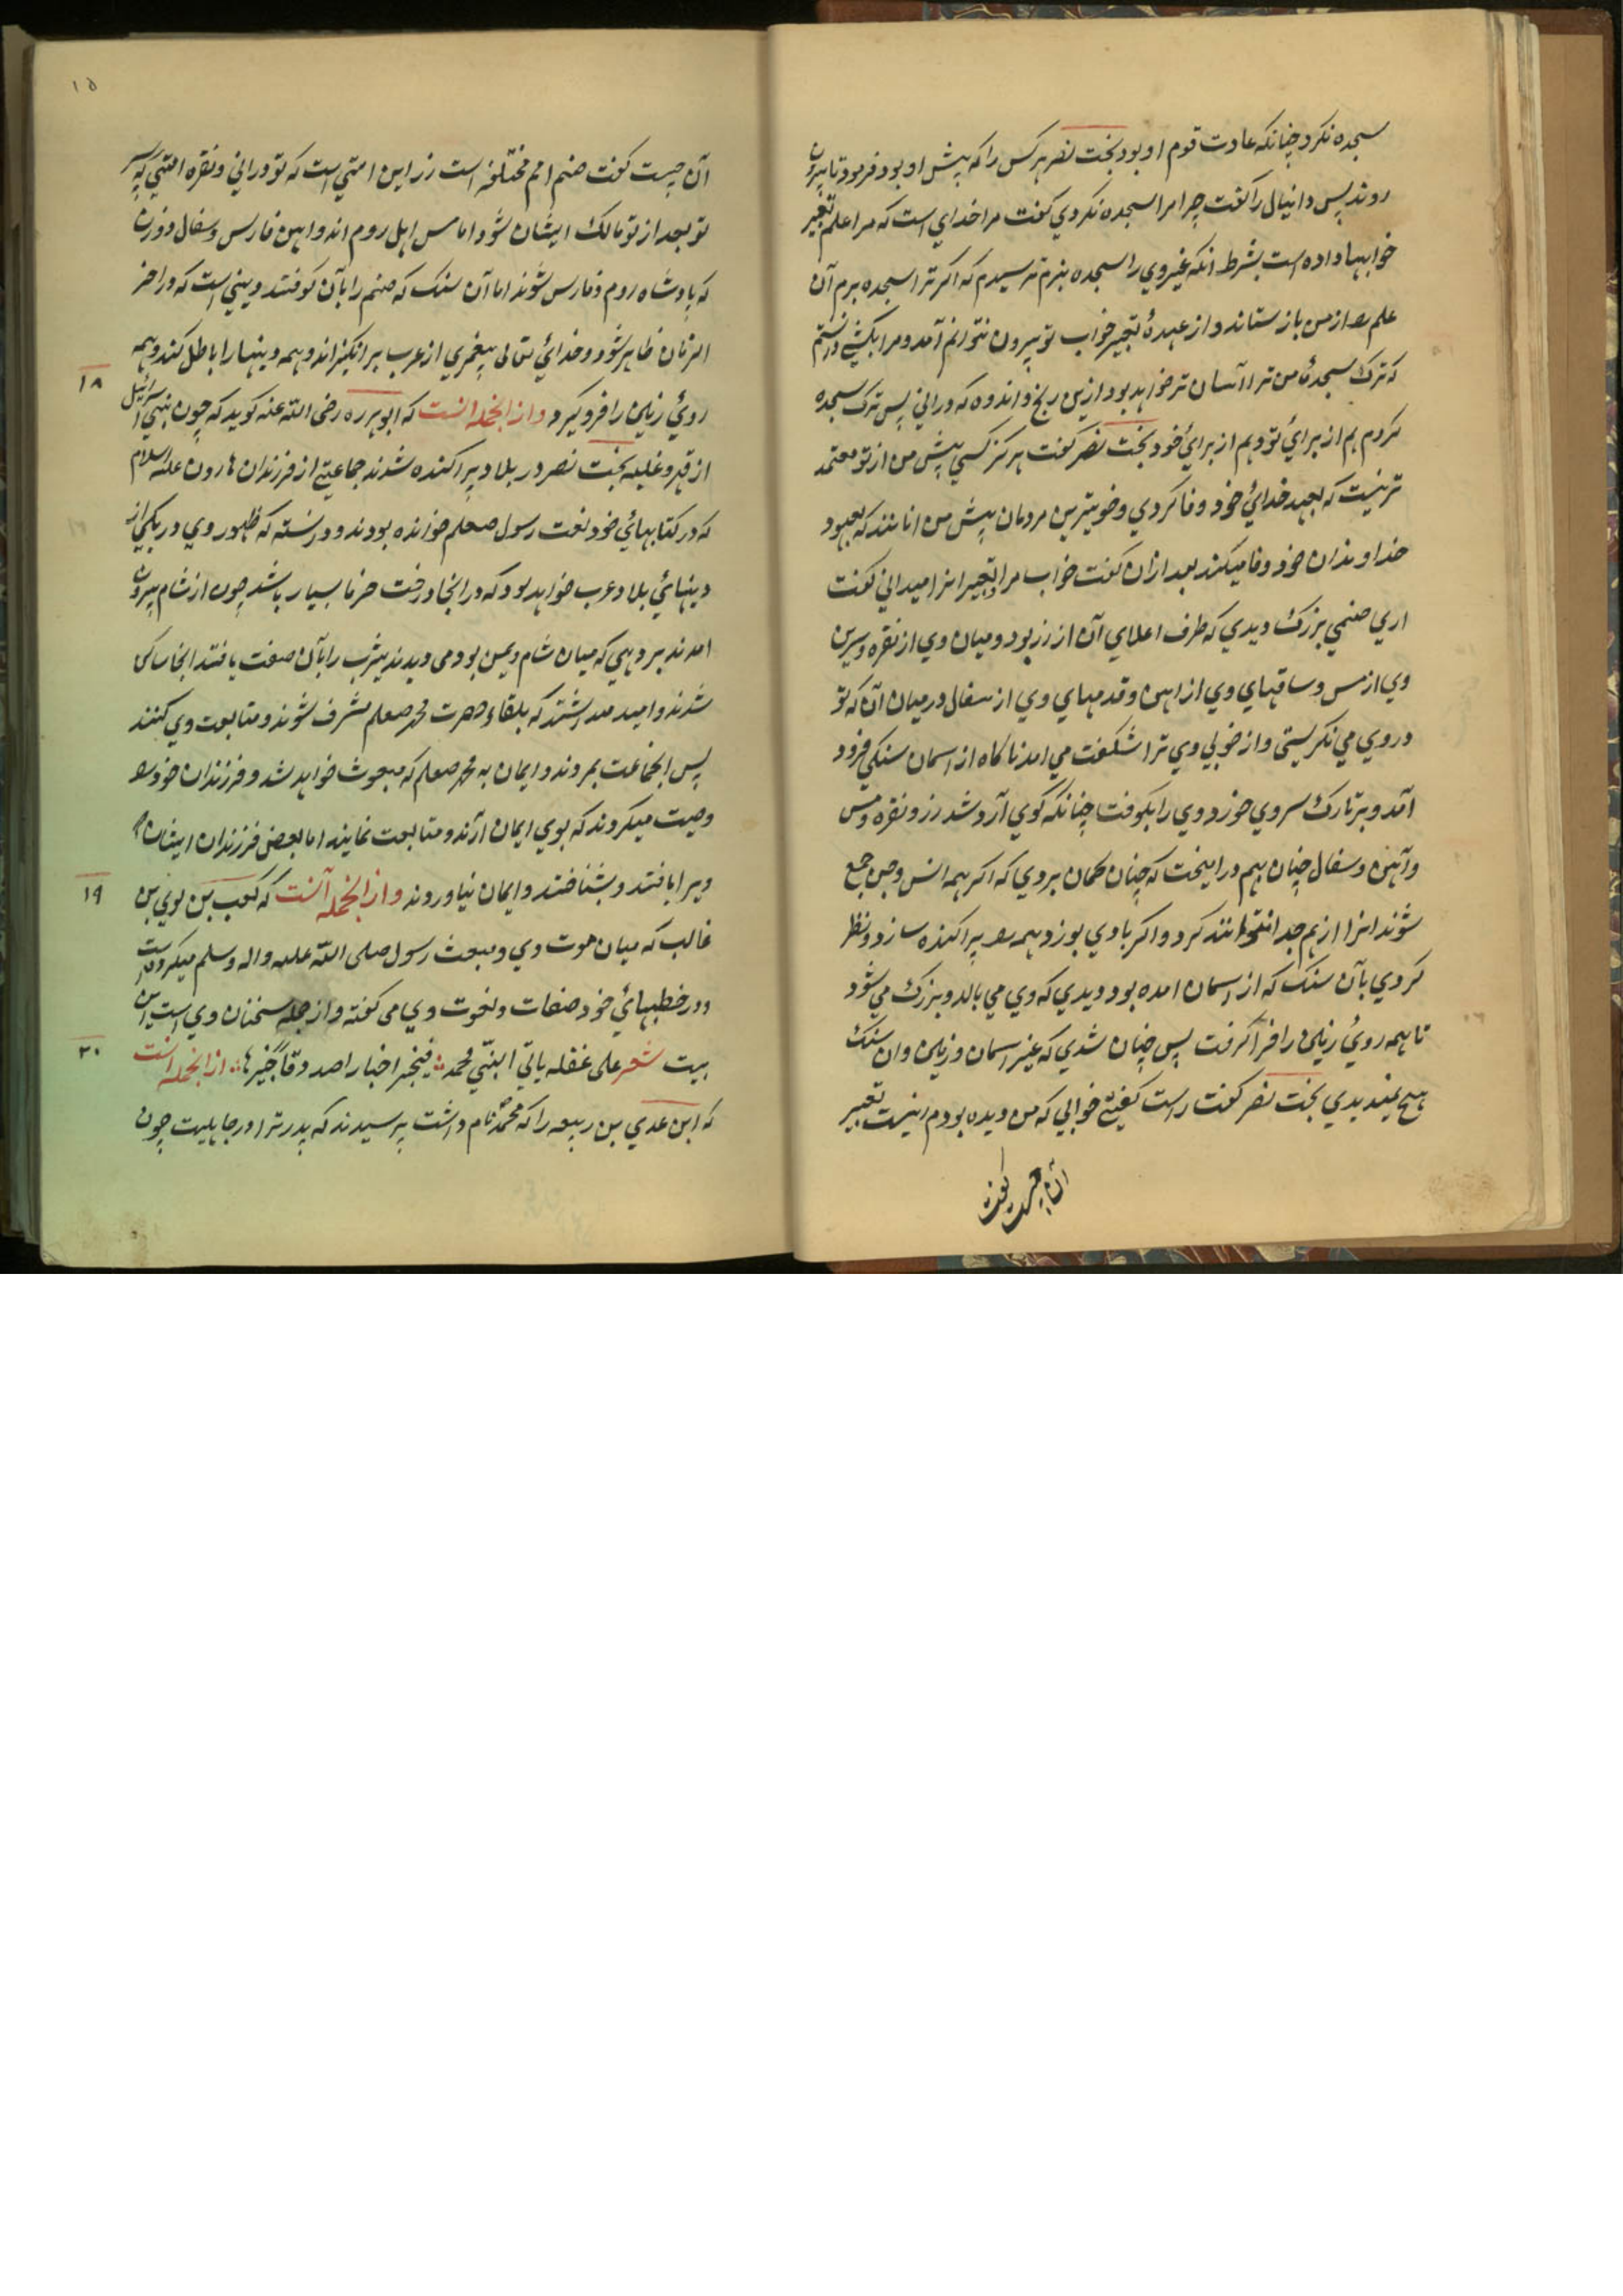 سجده نکرد چنانکه عادت قوم او بود بخت نصر هر کس را که پیش او بود فرمود تا بیرون
روند پس دانیال را گفت چرا مرا سجده نکردی گفت مرا خدای است که مرا علم تعبیر
خوابها داده است بشرط انکه غیر وی را سجده نبرم ترسیدم که اکر ترا سجده برم آن
علم را از من باز ستاند و از عهدهٔ تعبیر خواب تو بیرون نتوانم آمد و مرا بکشی دانستم
که ترک سجدهٔ من ترا آسان تر خواهد بود ازین رنج و اندوه که درانی پس ترک سجده
کردم هم از برای تو و هم از برای خود بخت نصر کفت هرکز کسی پیش من از تو معتمد
تر نیست که بعهد خدای خود وفا کردی و خوبترین مردمان پیش من انانند که بعهود
خداوندان خود وفا میکنند بعد ازان کفت خواب مرا و تعبیر انرا میدانی کفت
اری صنمی بزرک دیدی که طرف اعلای آن از زر بود و میان وی از نقره و سرین
وی از مس و ساقهای وی از اهن و قدمهای وی از سفال در میان آن که تو
در وی می نکریستی و از خوبی وی ترا شکفت می امد ناکاه از اسمان سنکی فرود
آمد و بر تارک سر وی خورد و وی را بکوفت چنانکه کوی آرد شد زر و نقره و مس
و آهن و سفال چنان بهم در امیخت که چنان کمان بردی که اکر همه انس و جن جمع
شوند انرا از هم جدا نتوانند کرد و اکر بادی بوزد همه را پراکنده سازد و نظر
کردی بآن سنک که از اسمان امده بود دیدی که وی می بالد و بزرک می شود
تا همه روی زمین را فرا کرفت پس چنان شدی که غیر اسمان و زمین و ان سنک
هیچ نمیدیدی بخت نصر کفت راست کفتی خوابی که من دیده بودم اینست تعبیر
آن چیست کفت
۱۵
آن چیست کفت صنم امم مختلفه است زر این امتی است که تو درانی و نقره امتی که پسر
تو بعد از تو مالک ایشان شود اما مس اهل روم اند و اهن فارس و سفال دو زن
که پادشاه روم و فارس شوند اما آن سنک که صنم را بآن کوفتند دینی است که در اخر
الزمان ظاهر شود و خدای تعالی پیغمبری از عرب بر انکیزاند و همه دینها را باطل کند و همه
۱۸
روی زمین را فرو کیرد و از انجمله انست که ابو هریره رضی الله عنه کوید که چون بنی اسرائیل
از قهر و غلبه بخت نصر در بلاد پراکنده شدند جماعتی از فرزندان هارون علیه السلام
که در کتابهای خود نعت رسول صعلم خوانده بودند و دانسته که ظهور وی در یکی از
دیهای بلاد عرب خواهد بود که در انجا درخت خرما بسیار باشد چون از شام بیرون
امدند بر دهی که میان شام و یمن بود می دیدند یثرب را بآن صفت یافتند انجا ساکن
شدند و امید میداشتند که بلقاء حضرت محمد صعلم مشرف شوند و متابعت وی کنند
پس انجماعت بمردند و ایمان به محمد صعلم که مبعوث خواهد شد و فرزندان خود را
وصیت میکردند که بوی ایمان آرند و متابعت نمایند اما بعض فرزندان ایشان که
۱۹
ویرا یافتند و بشناختند و ایمان نیاوردند و از انجمله آنست که کعب بن لوی بن
غالب که میان موت وی و مبعث رسول صلی الله علیه واله وسلم
در خطبهای خود صفات و نعوت وی می کفته و از جمله سخنان وی است این
۲۰
بیت شعر علی غفله یاتی النبی محمد فیخبر اخبارا صدوقا خبیرها از انجمله انست
که ابن عدی بن ربیعه را که محمد نام داشت پرسیدند که پدر ترا در جاهلیت چون